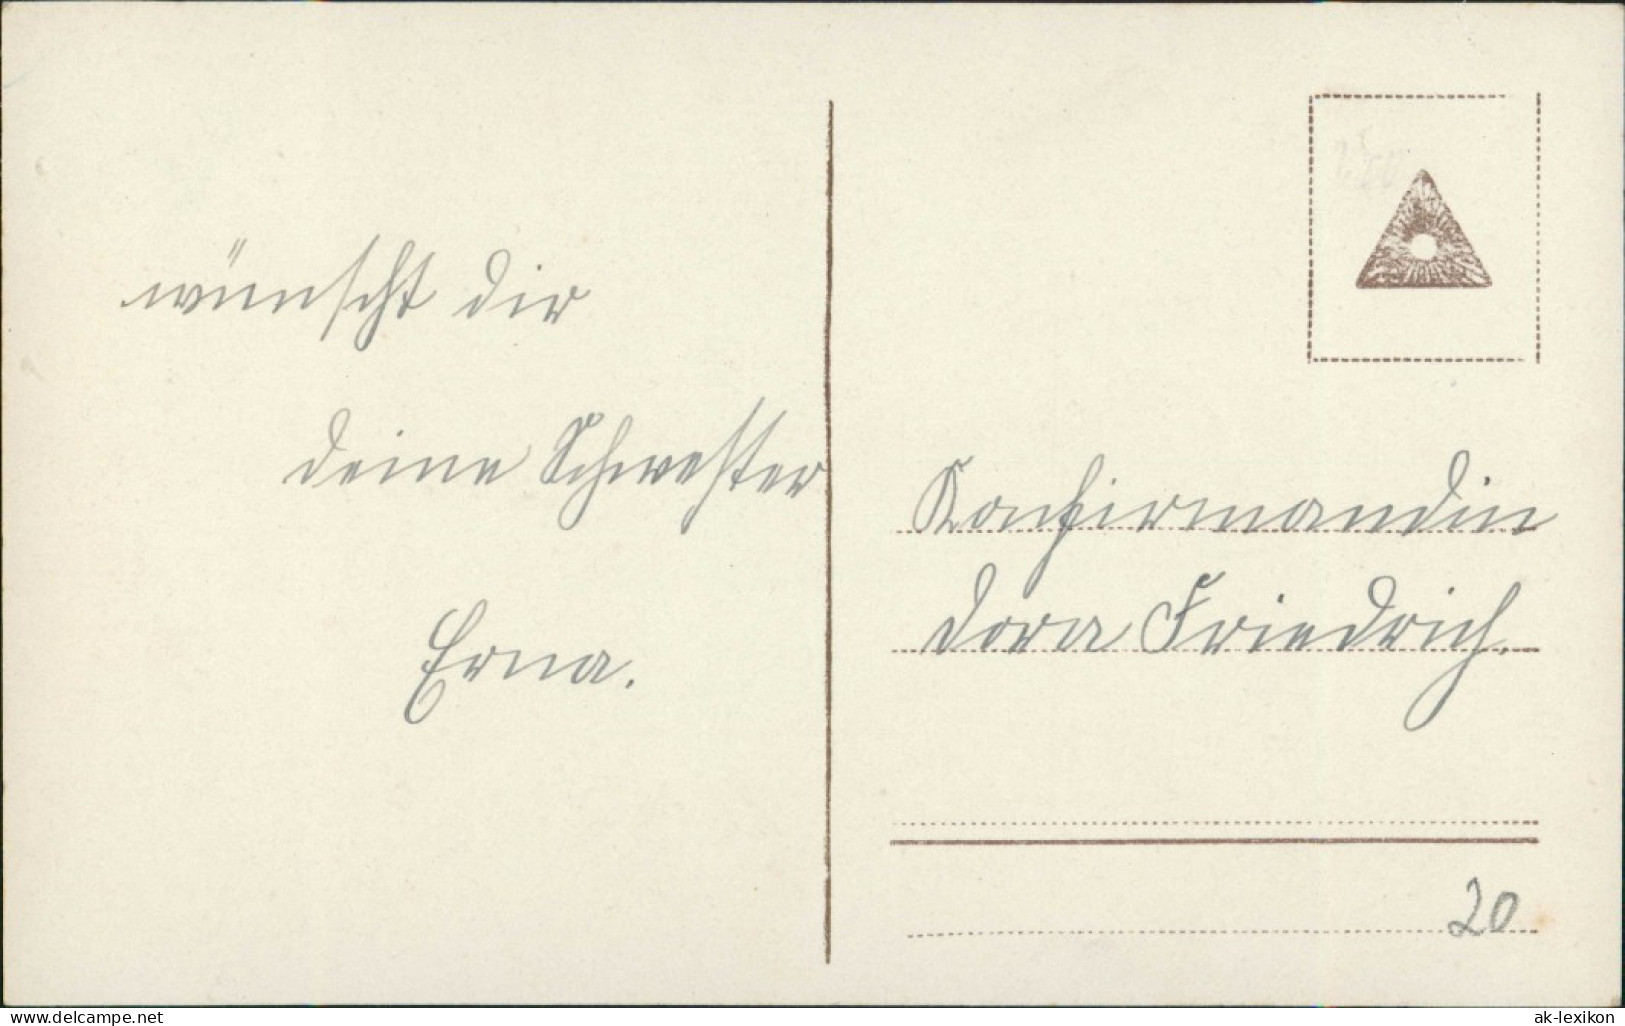 wünscht dir
deine Schwester
Erna.
Konfirmandin
Dora Friedrich.
20
www.delcampe.net
ak-lexikon